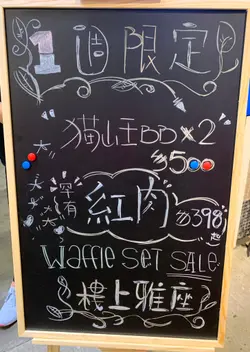 1週限定
猫山王BB×2
$500
還有
紅肉
$398起
Waffle SET SALE
樓上雅座